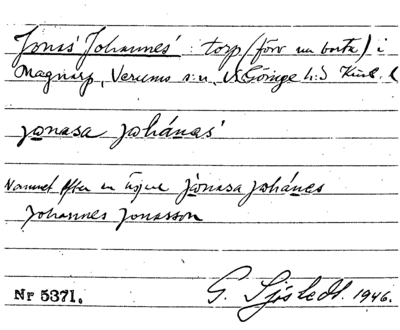 Jonas' Johannes' : torp (förv nu borta) i
Magnarp, Verums s:n, V Göinge h:d Krist. l
jonasa johánas'
Namnet efter en ägare jònasa johánes
Johannes Jonasson
Nr 5371. G. Sjöstedt. 1946.